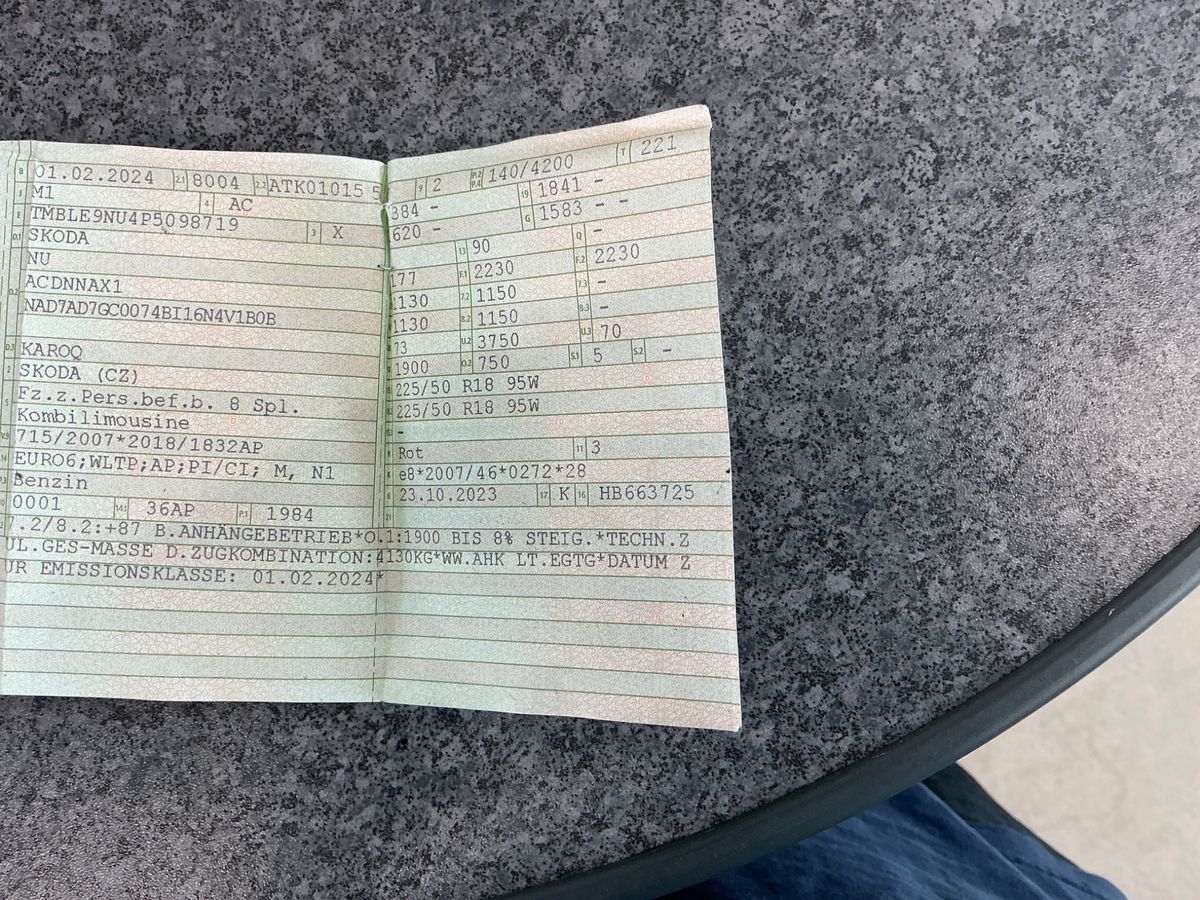 B 01.02.2024 2.1 8004 2.2 ATK01015 5
J M1 4 AC
E TMBLE9NU4P5098719 3 X
D.1 SKODA
NU
D.2 ACDNNAX1
NAD7AD7GC0074BI16N4V1B0B
D.3 KAROQ
2 SKODA (CZ)
5 Fz.z.Pers.bef.b. 8 Spl.
Kombilimousine
V.9 715/2007*2018/1832AP
14 EURO6;WLTP;AP;PI/CI; M, N1
P.3 Benzin
0001 14.1 36AP P.1 1984
7.2/8.2:+87 B.ANHÄNGEBETRIEB*O.1:1900 BIS 8% STEIG.*TECHN.Z
UL.GES-MASSE D.ZUGKOMBINATION:4130KG*WW.AHK LT.EGTG*DATUM Z
UR EMISSIONSKLASSE: 01.02.2024*
9 2 P.2 P.4 140/4200 T 221
384 - 19 1841 -
620 - G 1583 - -
13 90 Q -
177 F.1 2230 F.2 2230
1130 7.2 1150 7.3 -
1130 8.2 1150 8.3 -
73 U.2 3750 U.3 70
1900 O.2 750 S.1 5 S.2 -
225/50 R18 95W
225/50 R18 95W
-
R Rot 11 3
K e8*2007/46*0272*28
6 23.10.2023 17 K 16 HB663725
21